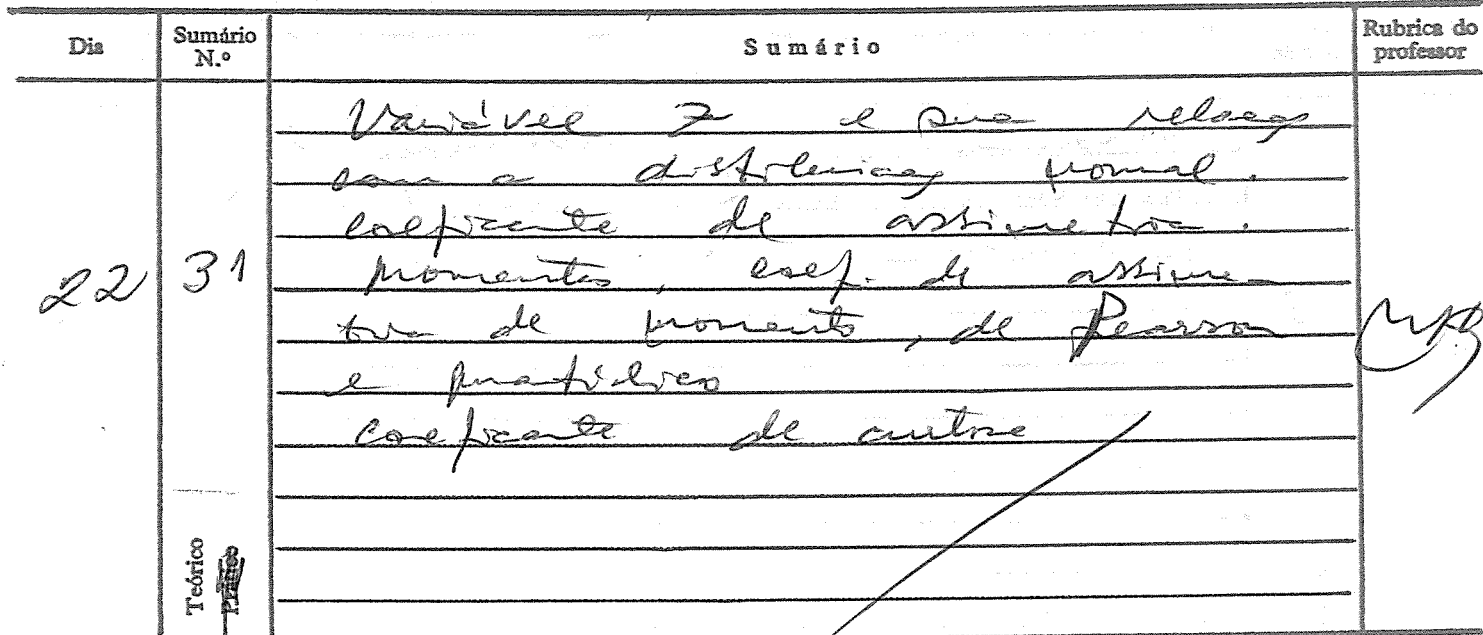 Dia Sumário N.º Sumário Rubrica do professor
Variável Z e sua relação
com a distribuição normal.
Coeficiente de assimetria.
22 31 Momentos, coef. de assime-
tria de momento, de Pearson
e
Coeficiente de curtose
Teórico
Prático